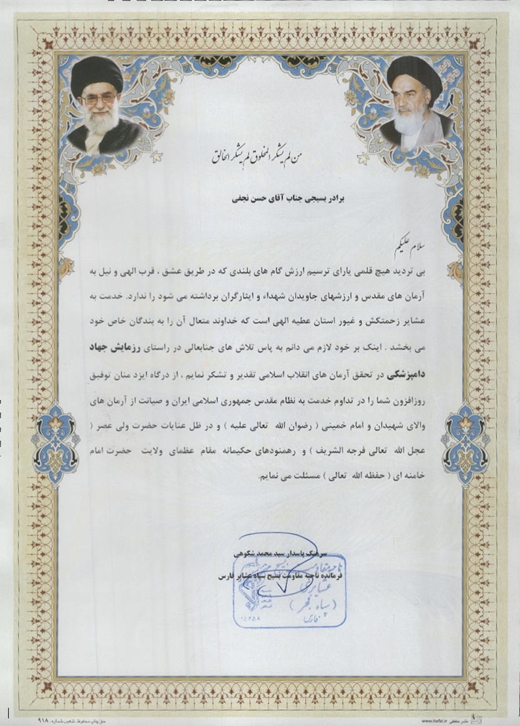 من لم یشکر المخلوق لم یشکر الخالق
برادر بسیجی جناب آقای حسن نجفی
سلام علیکم
بی تردید هیچ قلمی یارای ترسیم ارزش گام های بلندی که در طریق عشق ، قرب الهی و نیل به
آرمان های مقدس و ارزشهای جاویدان شهداء و ایثارگران برداشته می شود را ندارد. خدمت به
عشایر زحمتکش و غیور استان عطیه الهی است که خداوند متعال آن را به بندگان خاص خود
می بخشد . اینک بر خود لازم می دانم به پاس تلاش های جنابعالی در راستای رزمایش جهاد
دامپزشکی در تحقق آرمان های انقلاب اسلامی تقدیر و تشکر نمایم ، از درگاه ایزد منان توفیق
روزافزون شما را در تداوم خدمت به نظام مقدس جمهوری اسلامی ایران و صیانت از آرمان های
والای شهیدان و امام خمینی ( رضوان الله تعالی علیه ) و در ظل عنایات حضرت ولی عصر (
عجل الله تعالی فرجه الشریف ) و رهنمودهای حکیمانه مقام عظمای ولایت حضرت امام
خامنه ای ( حفظه الله تعالی ) مسئلت می نمایم.
سرهنگ پاسدار سید محمد شکوهی
فرمانده ناحیه مقاومت بسیج سپاه عشایر فارس
عشایری
( سپاه فجر )